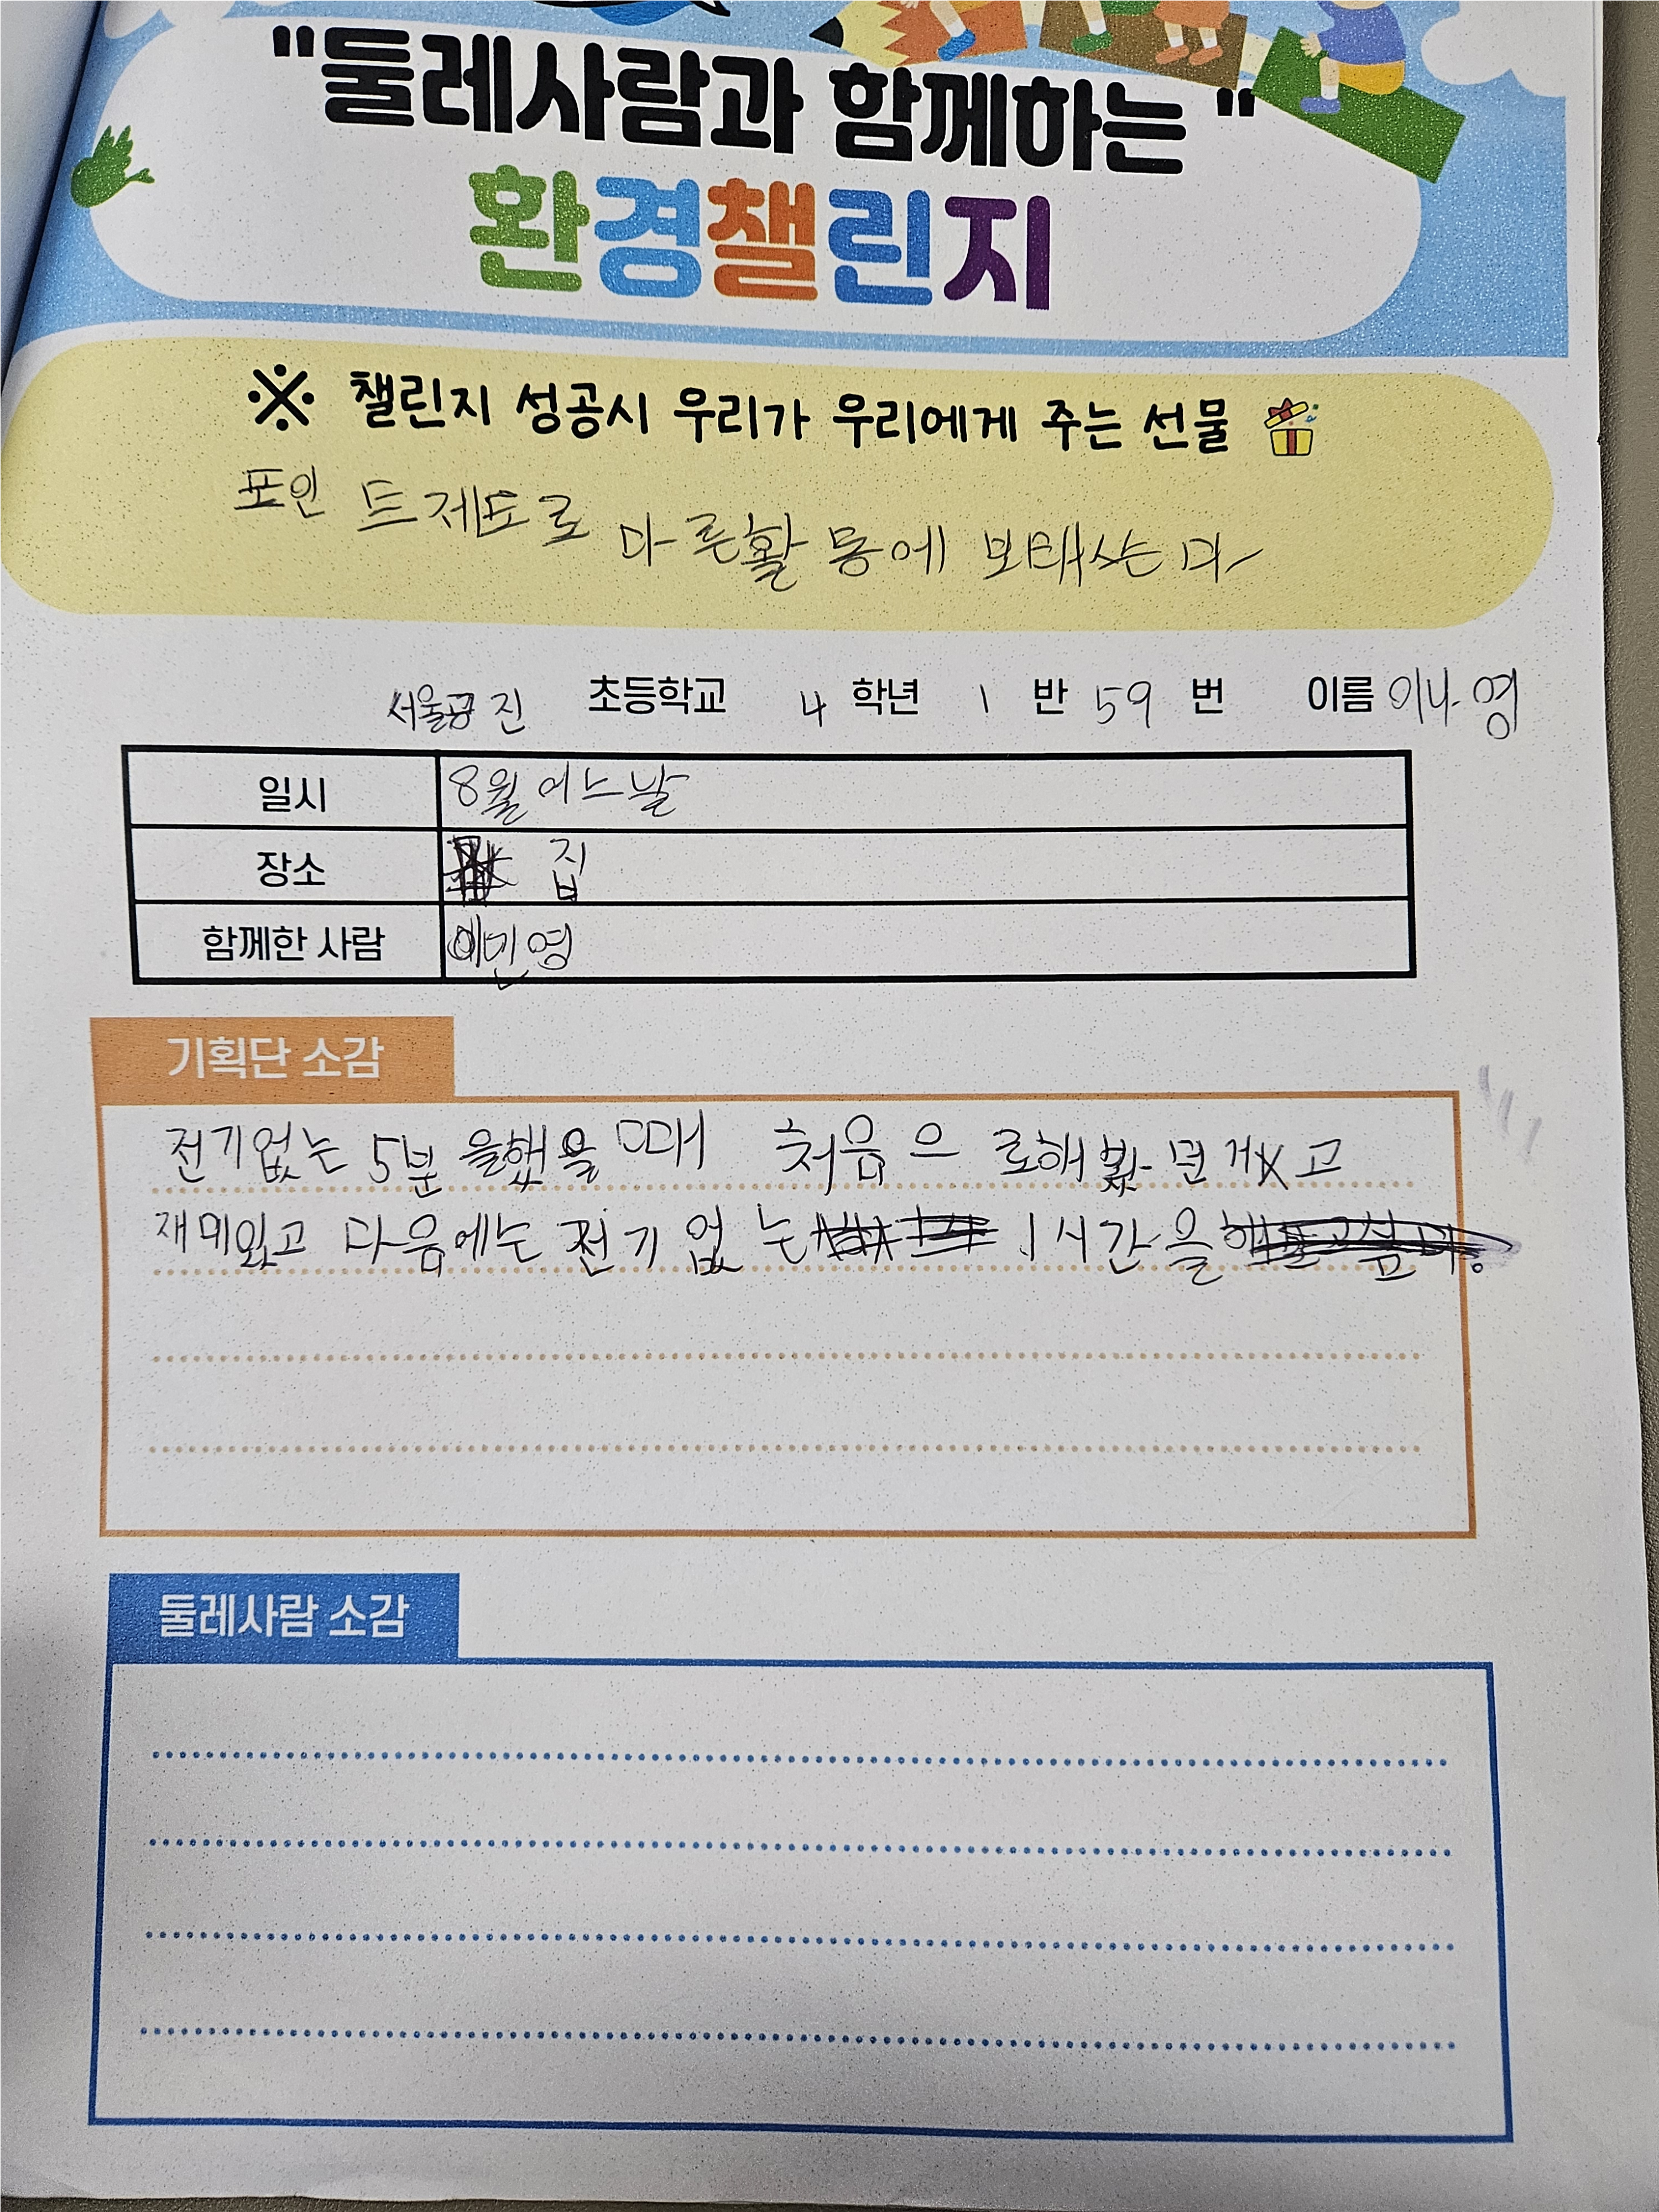 "둘레사람과 함께하는"
환경챌린지
※ 챌린지 성공시 우리가 우리에게 주는 선물
포인트제도로 다른활동에 보태쓰는다
서울공진 초등학교 4 학년 1 반 59 번 이름 이나영
일시 8월 어느날
장소 집
함께한 사람 이민영
기획단 소감
전기없는 5분을했을때 처음으로해봤던거고
재미있고 다음에는 전기없는 1시간을
둘레사람 소감